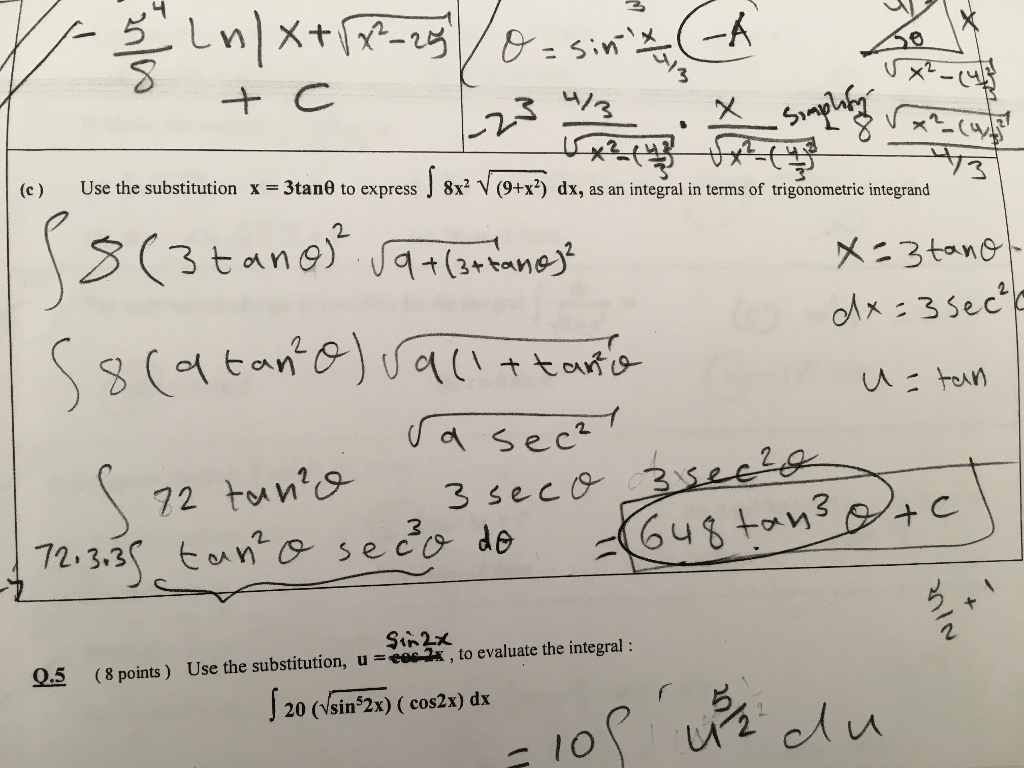 - 5⁴/8 Ln| x+√x²-25
+ C
θ = sin⁻¹ x/4/3 -A
x
√x²-(4/3)²
-2³ 4/3/√x²-(4/3)² · x/√x²-(4/3)² simplify 8 √x²-(4/3)²/4/3
(c) Use the substitution x = 3tanθ to express ∫ 8x² √(9+x²) dx, as an integral in terms of trigonometric integrand
∫ 8(3tanθ)² √9+(3+tanθ)² x = 3tanθ
dx = 3sec²
∫ 8(9tan²θ) √9(1+tan²θ u = tan
√9 sec²
∫ 72 tan²θ 3secθ 3sec²θ
72.3.3∫ tan²θ sec³θ dθ = 648 tan³θ + C
5/2 + 1
Sin2x
Q.5 (8 points) Use the substitution, u = cos 2x, to evaluate the integral :
∫ 20 (√sin⁵2x) ( cos2x) dx
= 10∫ u^5/2 du